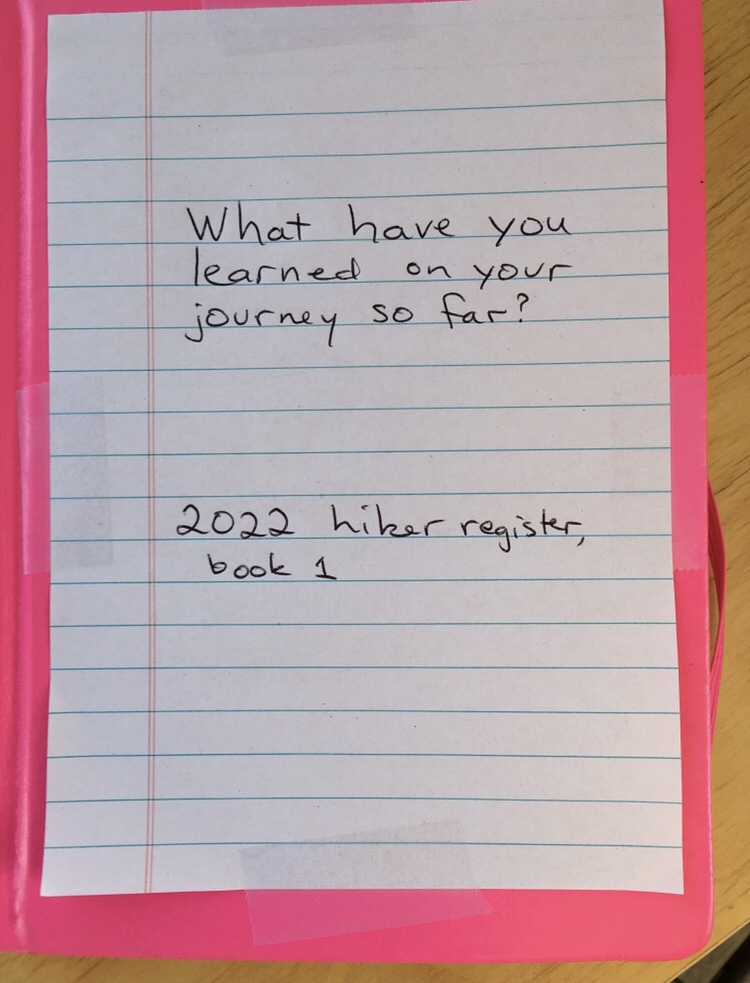 What have you
learned on your
journey so far?
2022 hiker register,
book 1